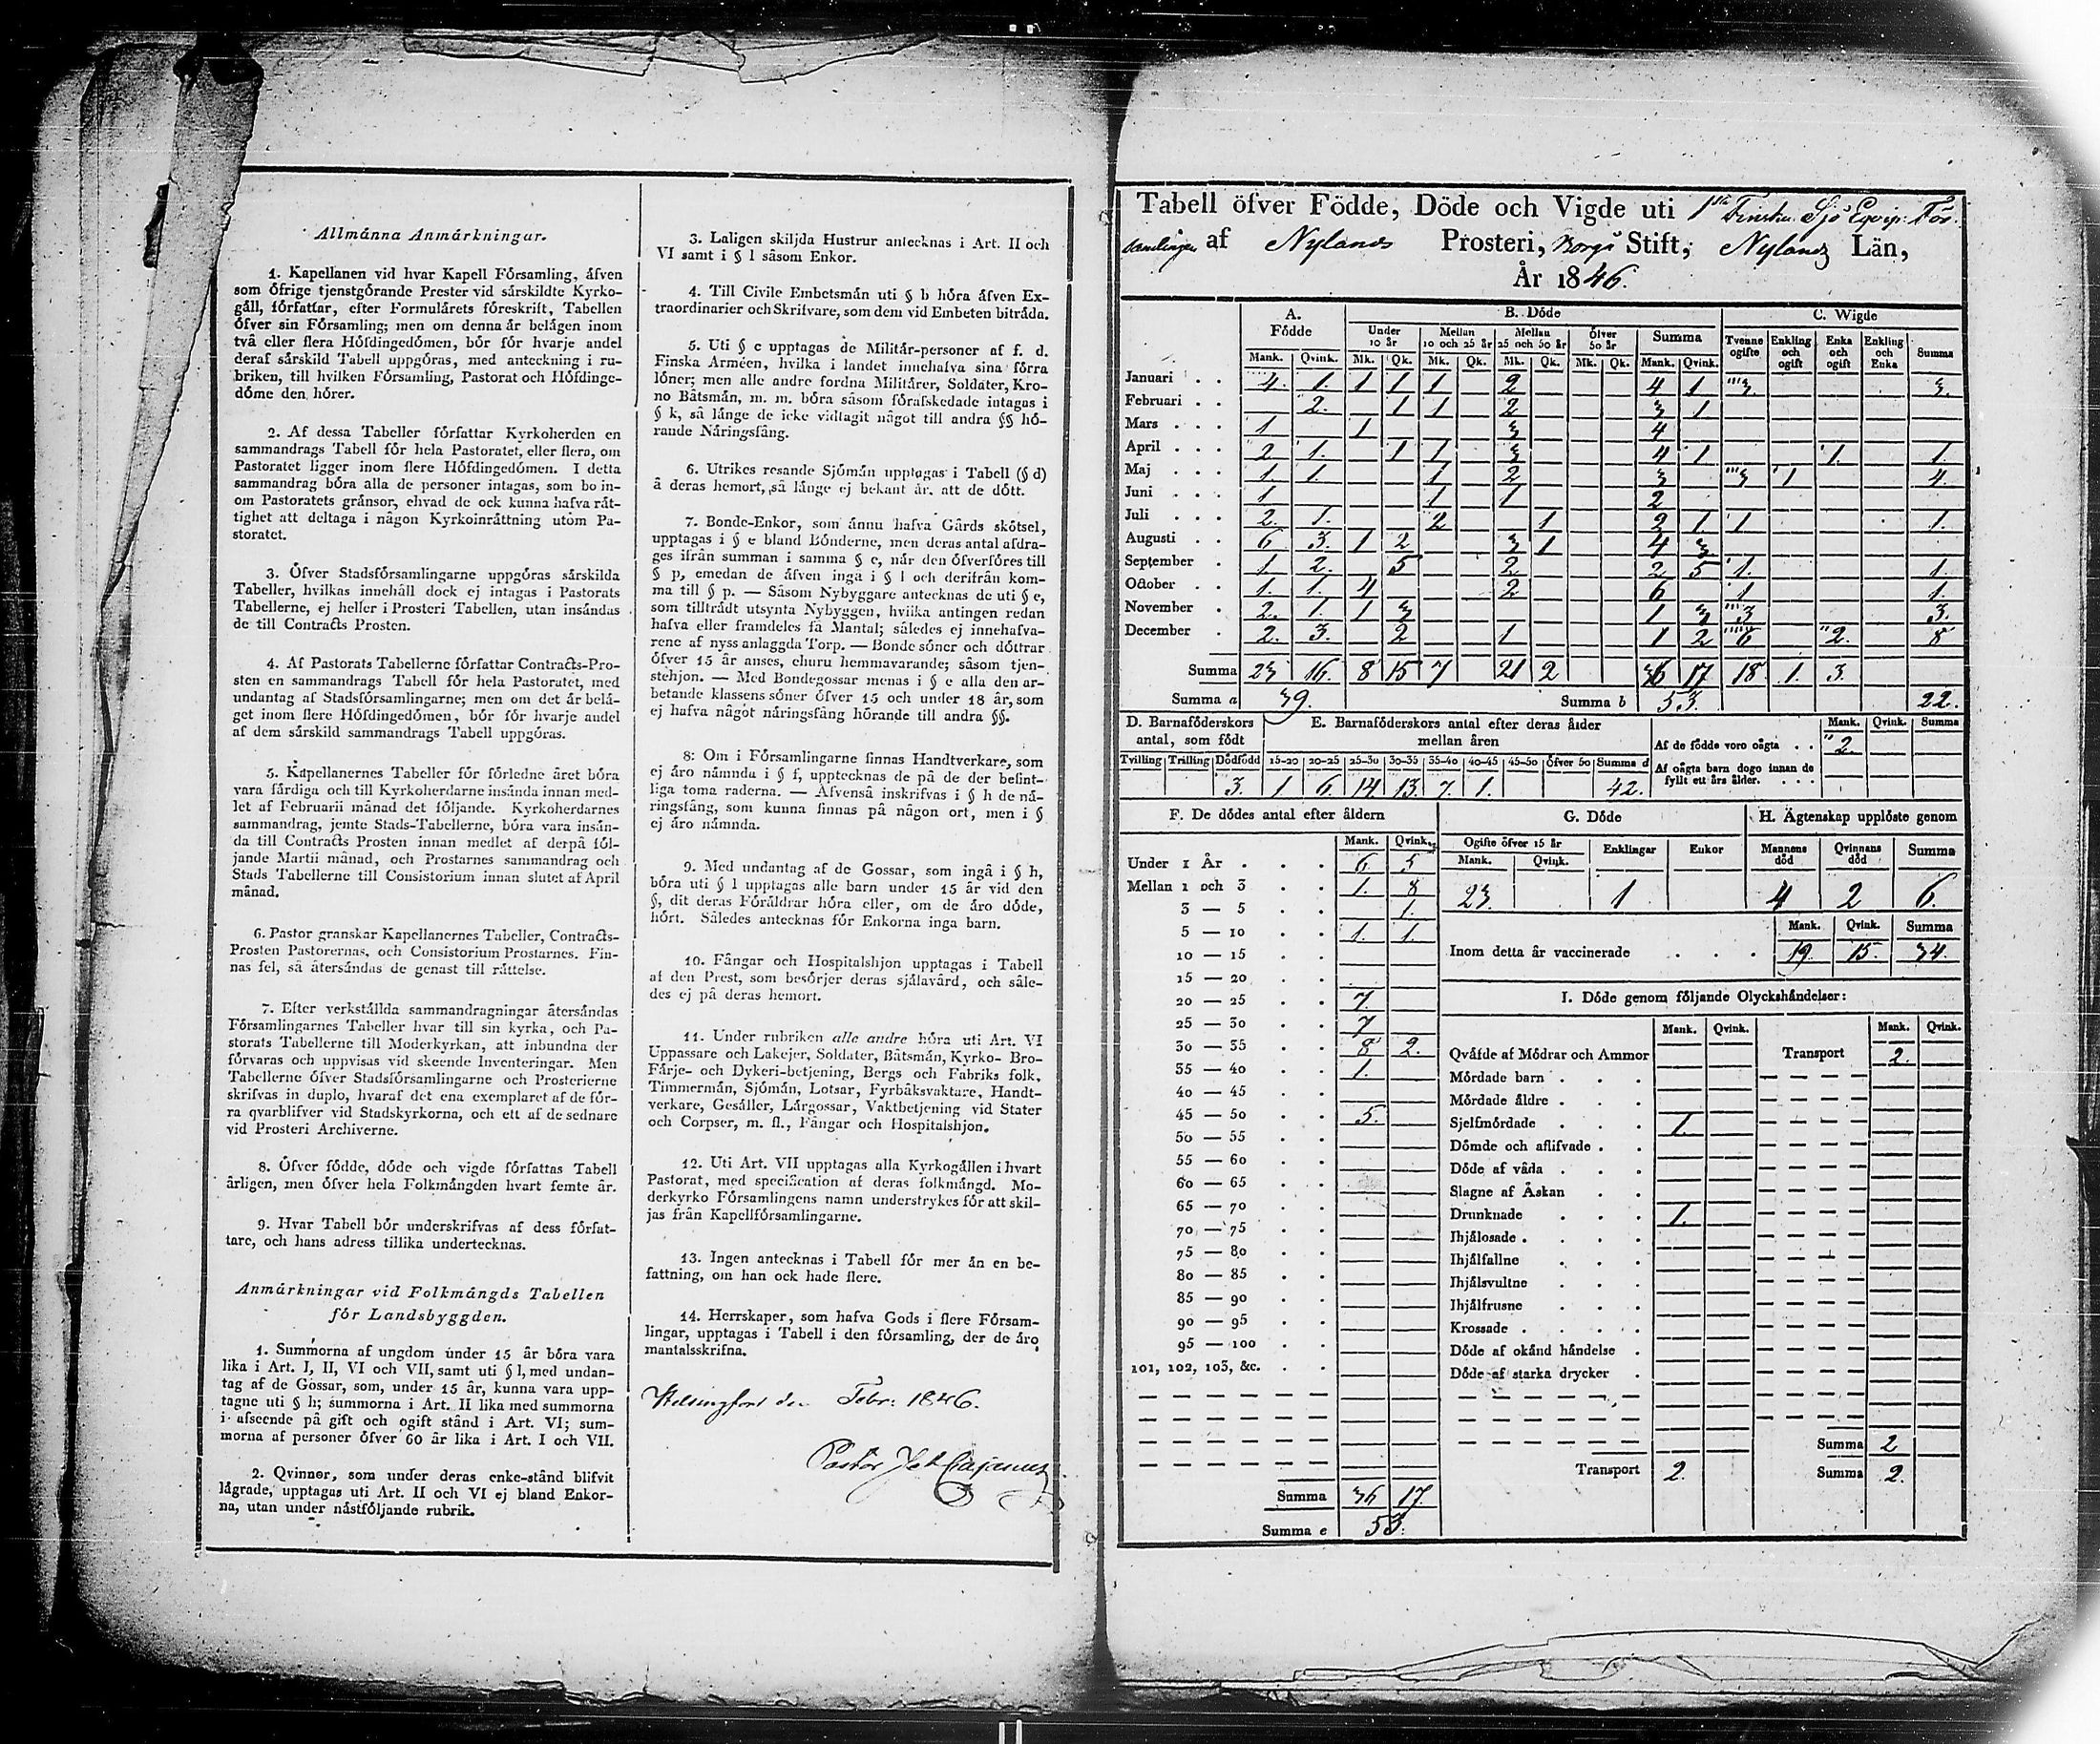 Allmánna Anmárkningar.
1. Kapellanen vid hvar Kapell Fórsamling, áfven
som ófrige tjenstgórande Prester vid sárskildte Kyrko-
gáll, fórfattar, efter Formulårets fóreskrift, Tabellen
ófver sin Fórsamling; men om denna år belågen inom
två eller flera Hófdingedómen, bór fór hvarje andel
deraf sárskild Tabell uppgóras, med anteckning i ru-
briken, till hvilken Fórsamling, Pastorat och Hófdinge-
dóme den hórer.
2. Af dessa Tabeller fórfattar Kyrkoherden en
sammandrags Tabell fór hela Pastoratet, eller flera, om
Pastoratet ligger inom flere Hófdingedómen. I detta
sammandrag bóra alla de personer intagas, som bo in-
om Pastoratets grånsor, ehvad de ock kunna hafva rát-
tighet att deltaga i någon Kyrkoinráttning utom Pa-
storatet.
3. Öfver Stadsfórsamlingarne uppgóras sárskilda
Tabeller, hvilkas innehåll dock ej intagas i Pastorats
Tabellerne, ej heller i Prosteri Tabellen, utan insándas
de till Contracts Prosten.
4. Af Pastorats Tabellerne fórfattar Contracts-Pro-
sten en sammandrags Tabell fór hela Pastoratet, med
undantag af Stadsfórsamlingarne; men om det år belá-
get inom flere Hófdingedómen, bór fór hvarje andel
af dem sárskild sammandrags Tabell uppgóras.
5. Kapellanernes Tabeller fór fórledne året bóra
vara fárdiga och till Kyrkoherdarne insánda innan med-
let af Februarii månad det fóljande. Kyrkoherdarnes
sammandrag, jemte Stads-Tabellerne, bóra vara insán-
da till Contracts Prosten innan medlet af derpå fól-
jande Martii månad, och Prostarnes sammandrag och
Stads Tabellerne till Consistorium innan slutet af April
månad.
6. Pastor granskar Kapellanernes Tabeller, Contracts-
Prosten Pastorernas, och Consistorium Prostarnes. Fin-
nas fel, så återsándas de genast till ráttelse.
7. Efter verkstállda sammandragningar återsándas
Fórsamlingarnes Tabeller hvar till sin kyrka, och Pa-
storats Tabellerne till Moderkyrkan, att inbundna der
fórvaras och uppvisas vid skeende Inventeringar. Men
Tabellerne ófver Stadsfórsamlingarne och Prosterierne
skrifvas in duplo, hvaraf det ena exemplaret af de fór-
ra qvarblifver vid Stadskyrkorna, och ett af de sednare
vid Prosteri Archiverne.
8. Öfver fódde, dóde och vigde fórfattas Tabell
årligen, men ófver hela Folkmångden hvart femte år.
9. Hvar Tabell bór underskrifvas af dess fórfat-
tare, och hans adress tillika undertecknas.
Anmárkningar vid Folkmångds Tabellen
fór Landsbyggden.
1. Summorna af ungdom under 15 år bóra vara
lika i Art. I, II, VI och VII, samt uti § l, med undan-
tag af de Gossar, som, under 15 år, kunna vara upp-
tagne uti § h; summorna i Art. II lika med summorna
i afseende på gift och ogift stånd i Art. VI; sum-
morna af personer ófver 60 år lika i Art. I och VII.
2. Qvinnor, som under deras enke-stånd blifvit
lágrade, upptagas uti Art. II och VI ej bland Enkor-
na, utan under nåstfóljande rubrik.
3. Laligen skiljda Hustrur antecknas i Art. II och
VI samt i § l såsom Enkor.
4. Till Civile Embetsmán uti § b hóra áfven Ex-
traordinarier och Skrifvare, som dem vid Embeten bitráda.
5. Uti § c upptagas de Militár-personer af f. d.
Finska Arméen, hvilka i landet innehafva sina fórra
lóner; men alle andre fordna Militárer, Soldater, Kro-
no Båtsmán, m. m. bóra såsom fórafskedade intagas i
§ k, så långe de icke vidtagit något till andra §§ hó-
rande Náringsfång.
6. Utrikes resande Sjómán upptagas i Tabell (§ d)
å deras hemort, så långe ej bekant år, att de dótt.
7. Bonde-Enkor, som ánnu hafva Gårds skótsel,
upptagas i § e bland Bónderne, men deras antal afdra-
ges ifrån summan i samma § e, når den ófverfóres till
§ p, emedan de áfven ingå i § l och derifrån kom-
ma till § p. — Såsom Nybyggare antecknas de uti § e,
som tilltrádt utsynta Nybyggen, hvilka antingen redan
hafva eller framdeles få Mantal; således ej innehafva-
rene af nyss anlaggda Torp. — Bonde sóner och dóttrar
ófver 15 år anses, ehuru hemmavarande, såsom tjen-
stehjon. — Med Bondegossar menas i § e alla den ar-
betande klassens sóner ófver 15 och under 18 år, som
ej hafva något náringsfång hórande till andra §§.
8: Om i Fórsamlingarne finnas Handtverkare, som
ej áro námnda i § f, upptecknas de på de der befint-
liga toma raderna. — Áfvenså inskrifvas i § h de ná-
ringsfång, som kunna finnas på någon ort, men i §
ej áro námnda.
9. Med undantag af de Gossar, som ingå i § h,
bóra uti § l upptagas alle barn under 15 år vid den
§, dit deras Fóráldrar hóra eller, om de áro dóde,
hórt. Således antecknas fór Enkorna inga barn.
10. Fångar och Hospitalshjon upptagas i Tabell
af den Prest, som besórjer deras sjålavård, och såle-
des ej på deras hemort.
11. Under rubriken alle andre hóra uti Art. VI
Uppassare och Lakejer, Soldater, Båtsmán, Kyrko- Bro-
Fårje- och Dykeri-betjening, Bergs och Fabriks folk,
Timmermán, Sjómán, Lotsar, Fyrbåksvaktare, Handt-
verkare, Gesåller, Lårgossar, Vaktbetjening vid Stater
och Corpser, m. fl., Fångar och Hospitalshjon.
12. Uti Art. VII upptagas alla Kyrkogállen i hvart
Pastorat, med specification af deras folkmångd. Mo-
derkyrko Fórsamlingens namn understrykes fór att skil-
jas från Kapellfórsamlingarne.
13. Ingen antecknas i Tabell fór mer ån en be-
fattning, om han ock hade flere.
14. Herrskaper, som hafva Gods i flere Fórsam-
lingar, upptagas i Tabell i den fórsamling, der de áro
mantalsskrifna.
Helsingfors den Febr: 1846.
Pastor
Tabell öfver Födde, Döde och Vigde uti 1sta Finska Sjö Eqvip: För-
samlingen af Nylands Prosteri, Borgå Stift, Nylands Län,
År 1846.
A. Födde B. Döde C. Wigde
Under 10 år Mellan 10 och 25 år Mellan 25 och 50 år Öfver 50 år Summa Tvenne ogifte Enkling och ogift Enka och ogift Enkling och Enka Summa
Mank. Qvink. Mk. Qk. Mk. Qk. Mk. Qk. Mk. Qk. Mank. Qvink.
Januari 4. 1 1 1 1 2 4 1 3. 3.
Februari 2. 1 1 2 3 1
Mars 1 1 3 4
April 2 1. 1 1 3 4 1 1. 1.
Maj 1 1. 1 2 3 3 1 4.
Juni 1 1 1 2
Juli 2. 1. 2 1 2 1 1 1.
Augusti 6 3. 1 2 3 1 4 3
September 1 2. 5 2 2 5 1. 1.
October 1. 1. 4 2 6 1 1.
November 2. 1. 1 3 1 3 3 3.
December 2. 3. 2 1 1 2 6 2. 8
Summa 23 16. 8 15 7 21 2 36 17 18. 1. 3.
Summa a 39. Summa b 53. 22.
D. Barnafóderskors antal, som födt
Tvilling Trilling Dódfödd
3.
E. Barnafóderskors antal efter deras ålder
mellan åren
15-20 20-25 25-30 30-35 35-40 40-45 45-50 öfver 50 Summa d
1 6. 14 13. 7. 1. 42.
Mank. Qvink. Summa
Af de födde voro oägta 2.
Af oägta barn dogo innan de
fyllt ett års ålder.
F. De dödes antal efter åldern
Mank. Qvink.
Under 1 År 6 5
Mellan 1 och 3 1. 8
3 — 5 1.
5 — 10 1. 1.
10 — 15
15 — 20
20 — 25 7.
25 — 30 7
30 — 35 8 2.
35 — 40 1.
40 — 45
45 — 50 5.
50 — 55
55 — 60
60 — 65
65 — 70
70 — 75
75 — 80
80 — 85
85 — 90
90 — 95
95 — 100
101, 102, 103, &c.
Summa 36 17.
Summa e 53.
G. Döde
Ogifte öfver 15 år Enklingar Enkor
Mank. Qvink.
23. 1
H. Ägtenskap upplöste genom
Mannens död Qvinnans död Summa
4 2 6.
Mank. Qvink. Summa
Inom detta år vaccinerade 19. 15. 34.
I. Döde genom följande Olyckshändelser:
Mank. Qvink. Mank. Qvink.
Qväfde af Mödrar och Ammor Transport 2.
Mördade barn
Mördade äldre
Sjelfmördade 1.
Dömde och aflifvade
Döde af våda
Slagne af Åskan
Drunknade 1.
Ihjälosade
Ihjälfallne
Ihjälsvultne
Ihjälfrusne
Krossade
Döde af okänd händelse
Döde af starka drycker
Summa 2
Transport 2. Summa 2.